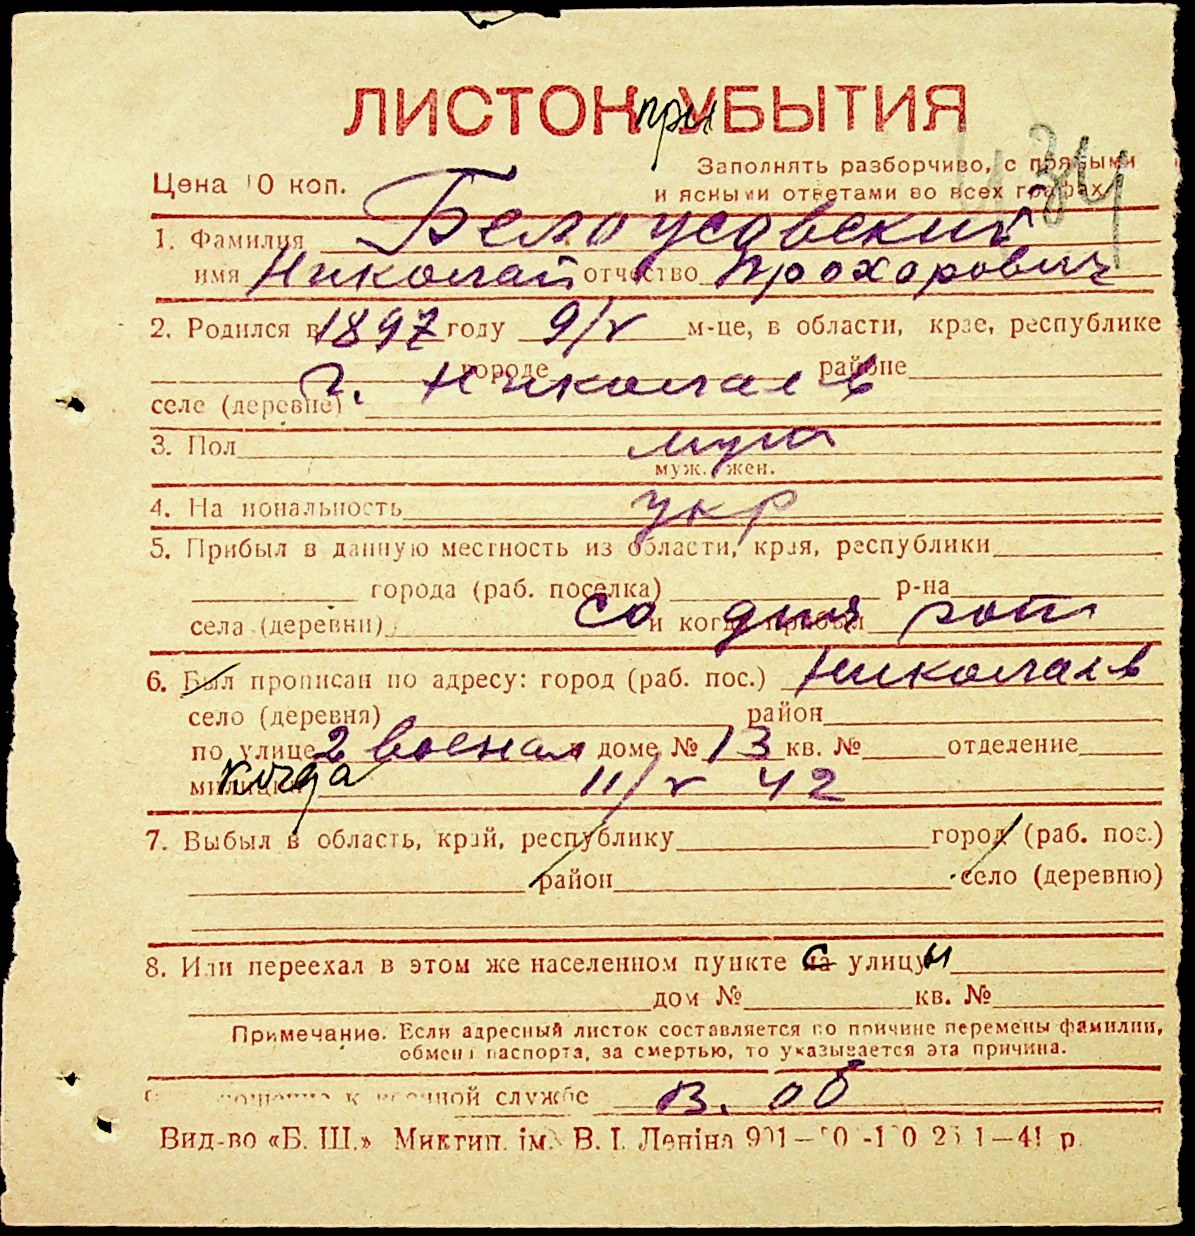 ЛИСТОК при УБЫТИЯ
434
Заполнять разборчиво, с прямыми
Цена 10 коп. и ясными ответами во всех графах
1. Фамилия Белоусовский
имя Николай отчество Прохорович
2. Родился в 1897 году 9/V м-це, в области, крае, республике
городе районе
г. Николаев
селе (деревне)
3. Пол муж
муж. жен.
4. Национальность укр
5. Прибыл в данную местность из области, края, республики
города (раб. поселка) р-на
села (деревни) и когда прибыл со дня рож
6. Был прописан по адресу: город (раб. пос.) Николаев
село (деревня) район
по улице 2 военая доме № 13 кв. № отделение
милиции когда 11/V 42
7. Выбыл в область, край, республику город (раб. пос.)
район село (деревню)
8. Или переехал в этом же населенном пункте на с улицу ы
дом № кв. №
Примечание. Если адресный листок составляется по причине перемены фамилии,
обмена паспорта, за смертью, то указывается эта причина.
к военной службе в. об
Вид-во «Б. Ш.» Миктип. ім. В. І. Леніна